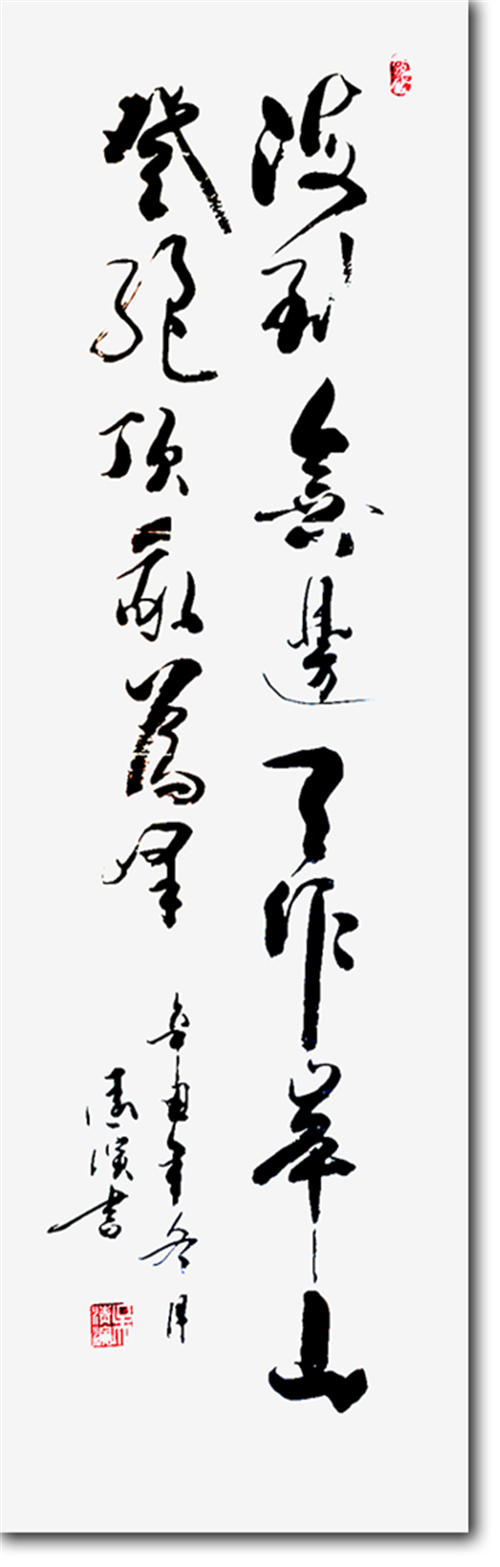 海到無邊天作岸山
登絕頂我為峰
辛丑年冬月
書